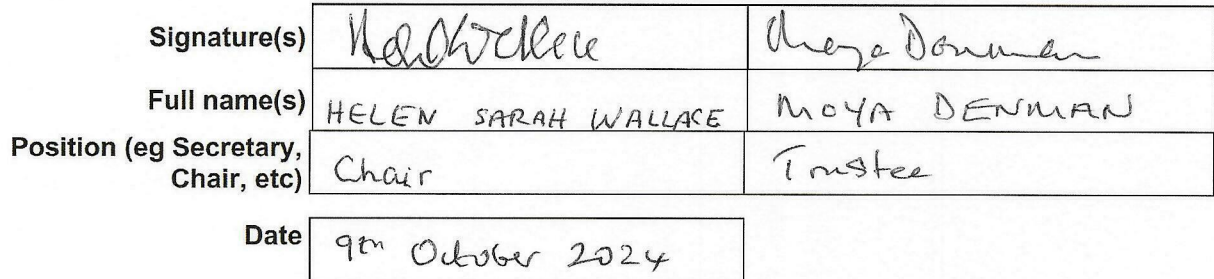 Signature(s) Moya Denman
Full name(s) HELEN SARAH WALLACE MOYA DENMAN
Position (eg Secretary,
Chair, etc) Chair Trustee
Date 9th October 2024